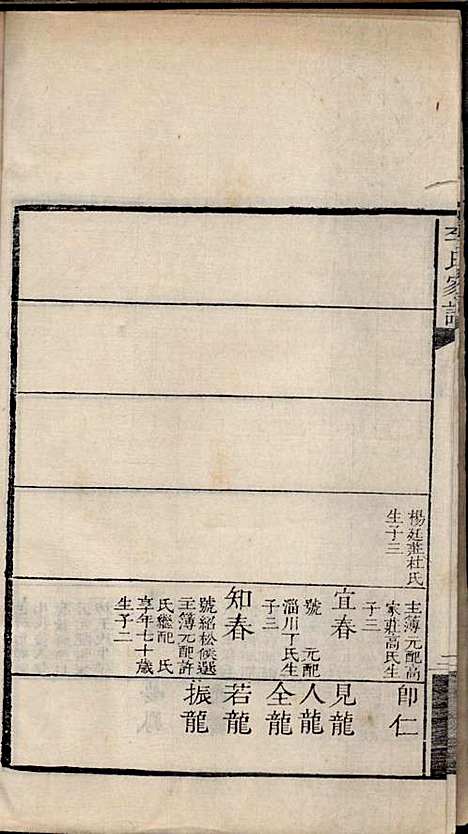 李氏家譜
楊廷莊杜氏
生子三
主簿元配高
家莊高氏生
子三
宜春
號　元配
淄川丁氏生
子三
知春
號紹松候選
主簿元配許
氏繼配　氏
享年七十歲
生子二
即仁
見龍
人龍
全龍
若龍
振龍